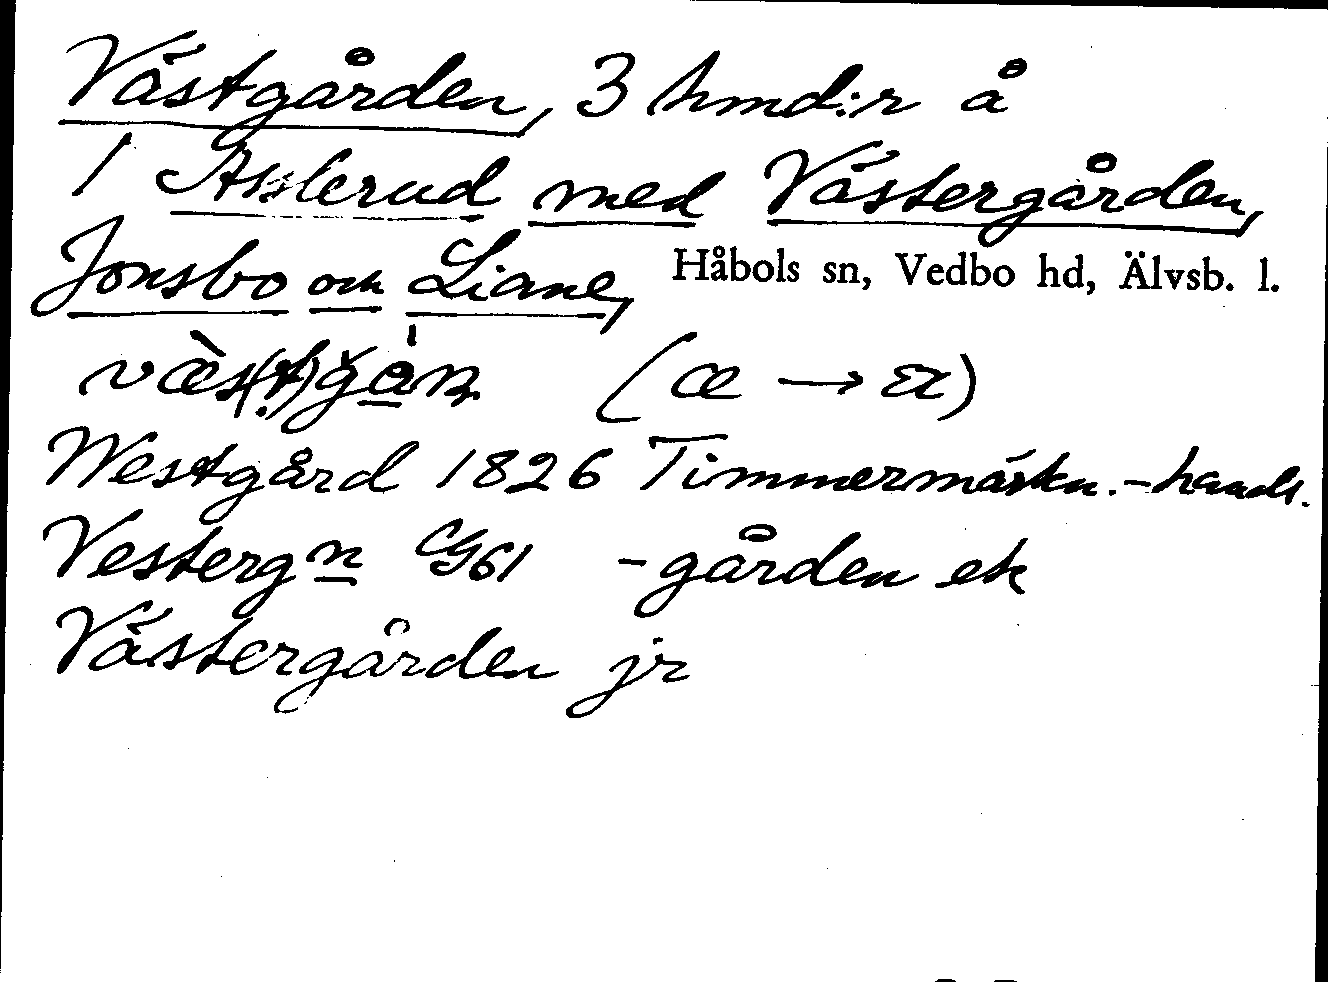 Västgården, 3 hmd:r å
1 Asslerud med Västergården,
Jonsbo och Liane, Håbols sn, Vedbo hd, Älvsb. l.
(æ → a)
Westgård 1826 Timmermärkn.-handl.
Vestergn G61 -gården ek
Västergården jr